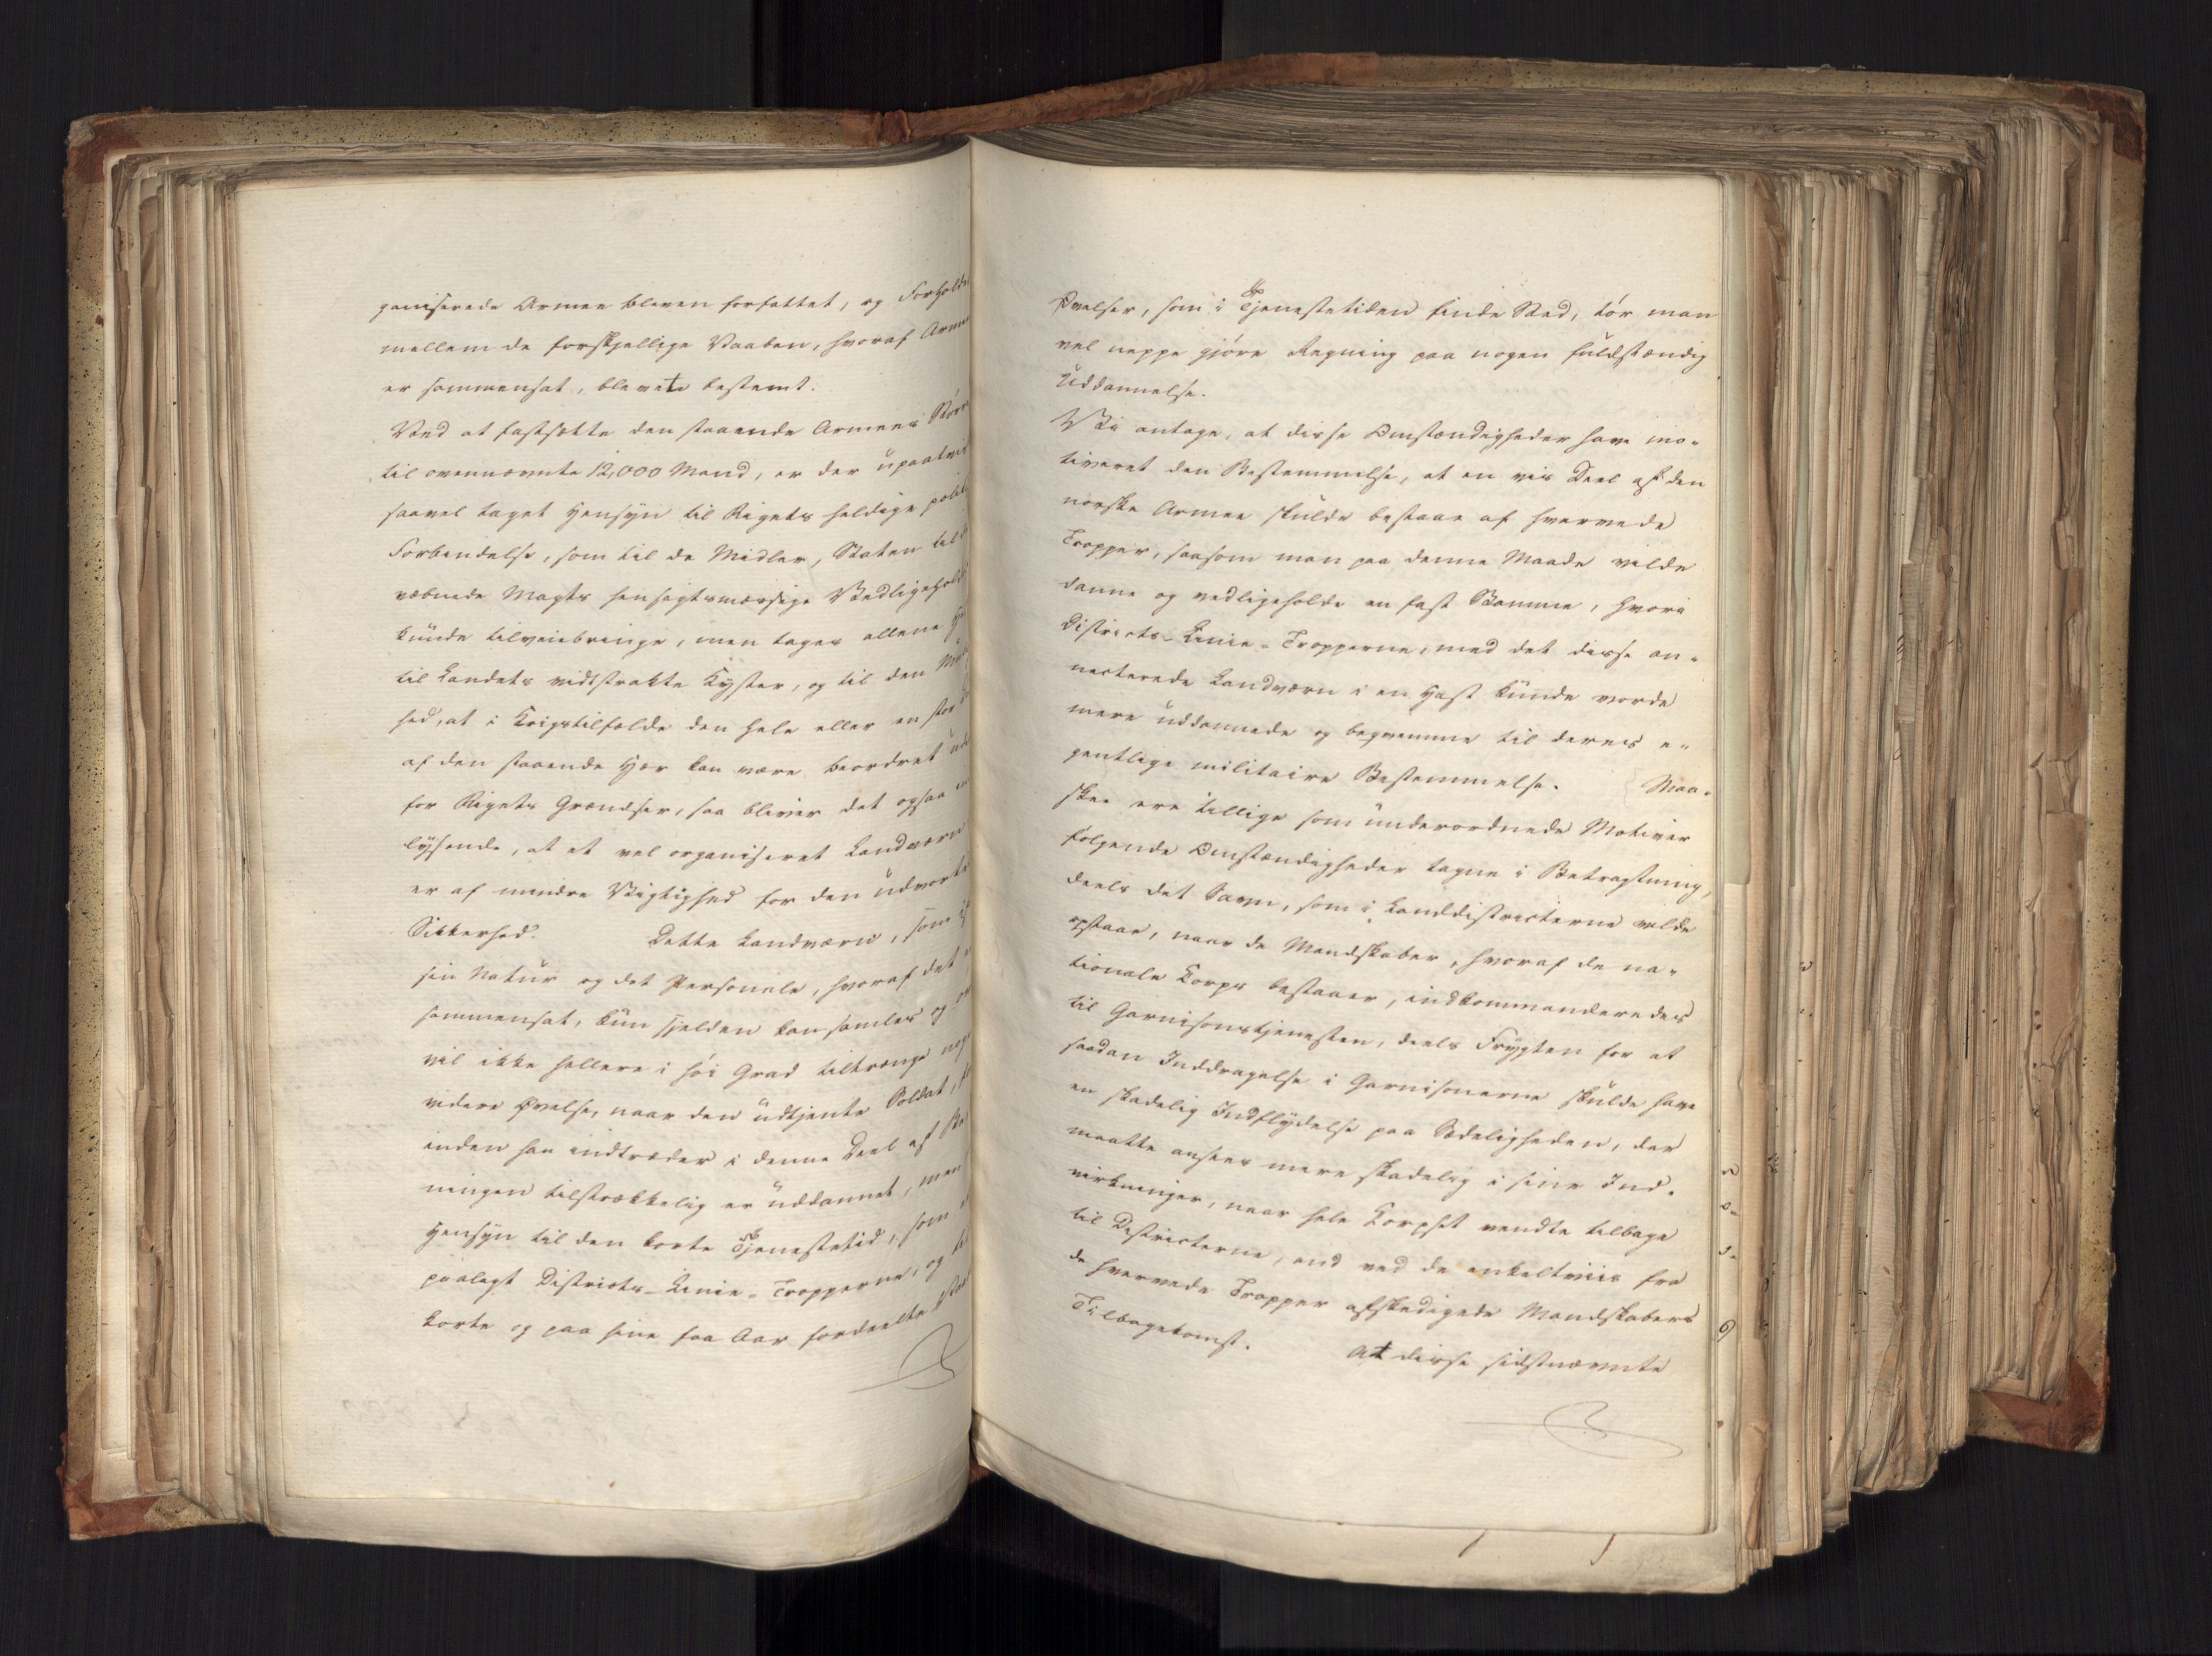 ganiserede Armee bleven forfattet, og Forholdet
mellem de forskjellige Vaaben, hvoraf Armeen
er sammensat, blevet bestemt.
Ved at fastsætte den staaende Armees Større
til ovennævnte 12,000 Mand, er der upaatvivl
saavel taget Hensyn til Rigets heldige politi
Forbindelse, som til de Midler, Staten til
væbnede Magts hensigtsmæssige Vedligehold
kunde tilveiebringe, men tages allene
til Landets vidtstrakte Kyster, og til den
hed, at i Krigstilfælde den hele eller en stor
af den staaende Hær kan være beordret uden
for Rigets Grændser, saa bliver det ogsaa
lysende, at et vel organiseret Landværn
er af mindre Vigtighed for den udvortes
Sikkerhed. Dette Landværn, som
sin Natur og det Personale, hvoraf det
sammensat, kun sjelden kan samles og
vil ikke hellere i høi Grad tiltrænge nogen
videre Øvelse, naar den udtjente Soldat,
inden han indtræder i denne Deel af
ningen tilstrækkelig er uddannet, men
Hensyn til den korte Tjenestetid, som
paalagt Districts-Linie-Tropperne, og
korte og paa sine faa Aar fordeelte
Øvelser, som i Tjenestetiden finde Sted, tør man
vel neppe gjøre Regning paa nogen fuldstændig
Uddannelse.
Vi antage, at disse Omstændigheder have mo-
tiveret den Bestemmelse, at en vis Deel af den
norske Armee skulde bestaae af hvervede
Tropper, saasom man paa denne Maade vilde
danne og vedligeholde en fast Stamme, hvori
Districts-Linie-Tropperne, med det disse an-
necterede Landværn i en Hast kunde vorde
mere uddannede og beqvemme til deres e-
gentlige militaire Bestemmelse. Maa-
skee ere tillige som underordnede Motiver
følgende Omstændigheder tagne i Betragtning,
deels det Savn, som i Landdistricterne vilde
opstaae, naar de Mandskaber, hvoraf de na-
tionale Korps bestaaer, indkommanderedes
til Garnisonstjenesten, deels Frygten for at
saadan Inddragelse i Garnisonerne skulde have
en skadelig Indflydelse paa Sædeligheden, der
maatte ansees mere skadelig i sine Ind-
virkninger, naar hele Korpset vendte tilbage
til Districterne, end ved de enkeltviis fra
de hvervede Tropper afskedigede Mandskabers
Tilbagekomst. At disse sidstnævnte